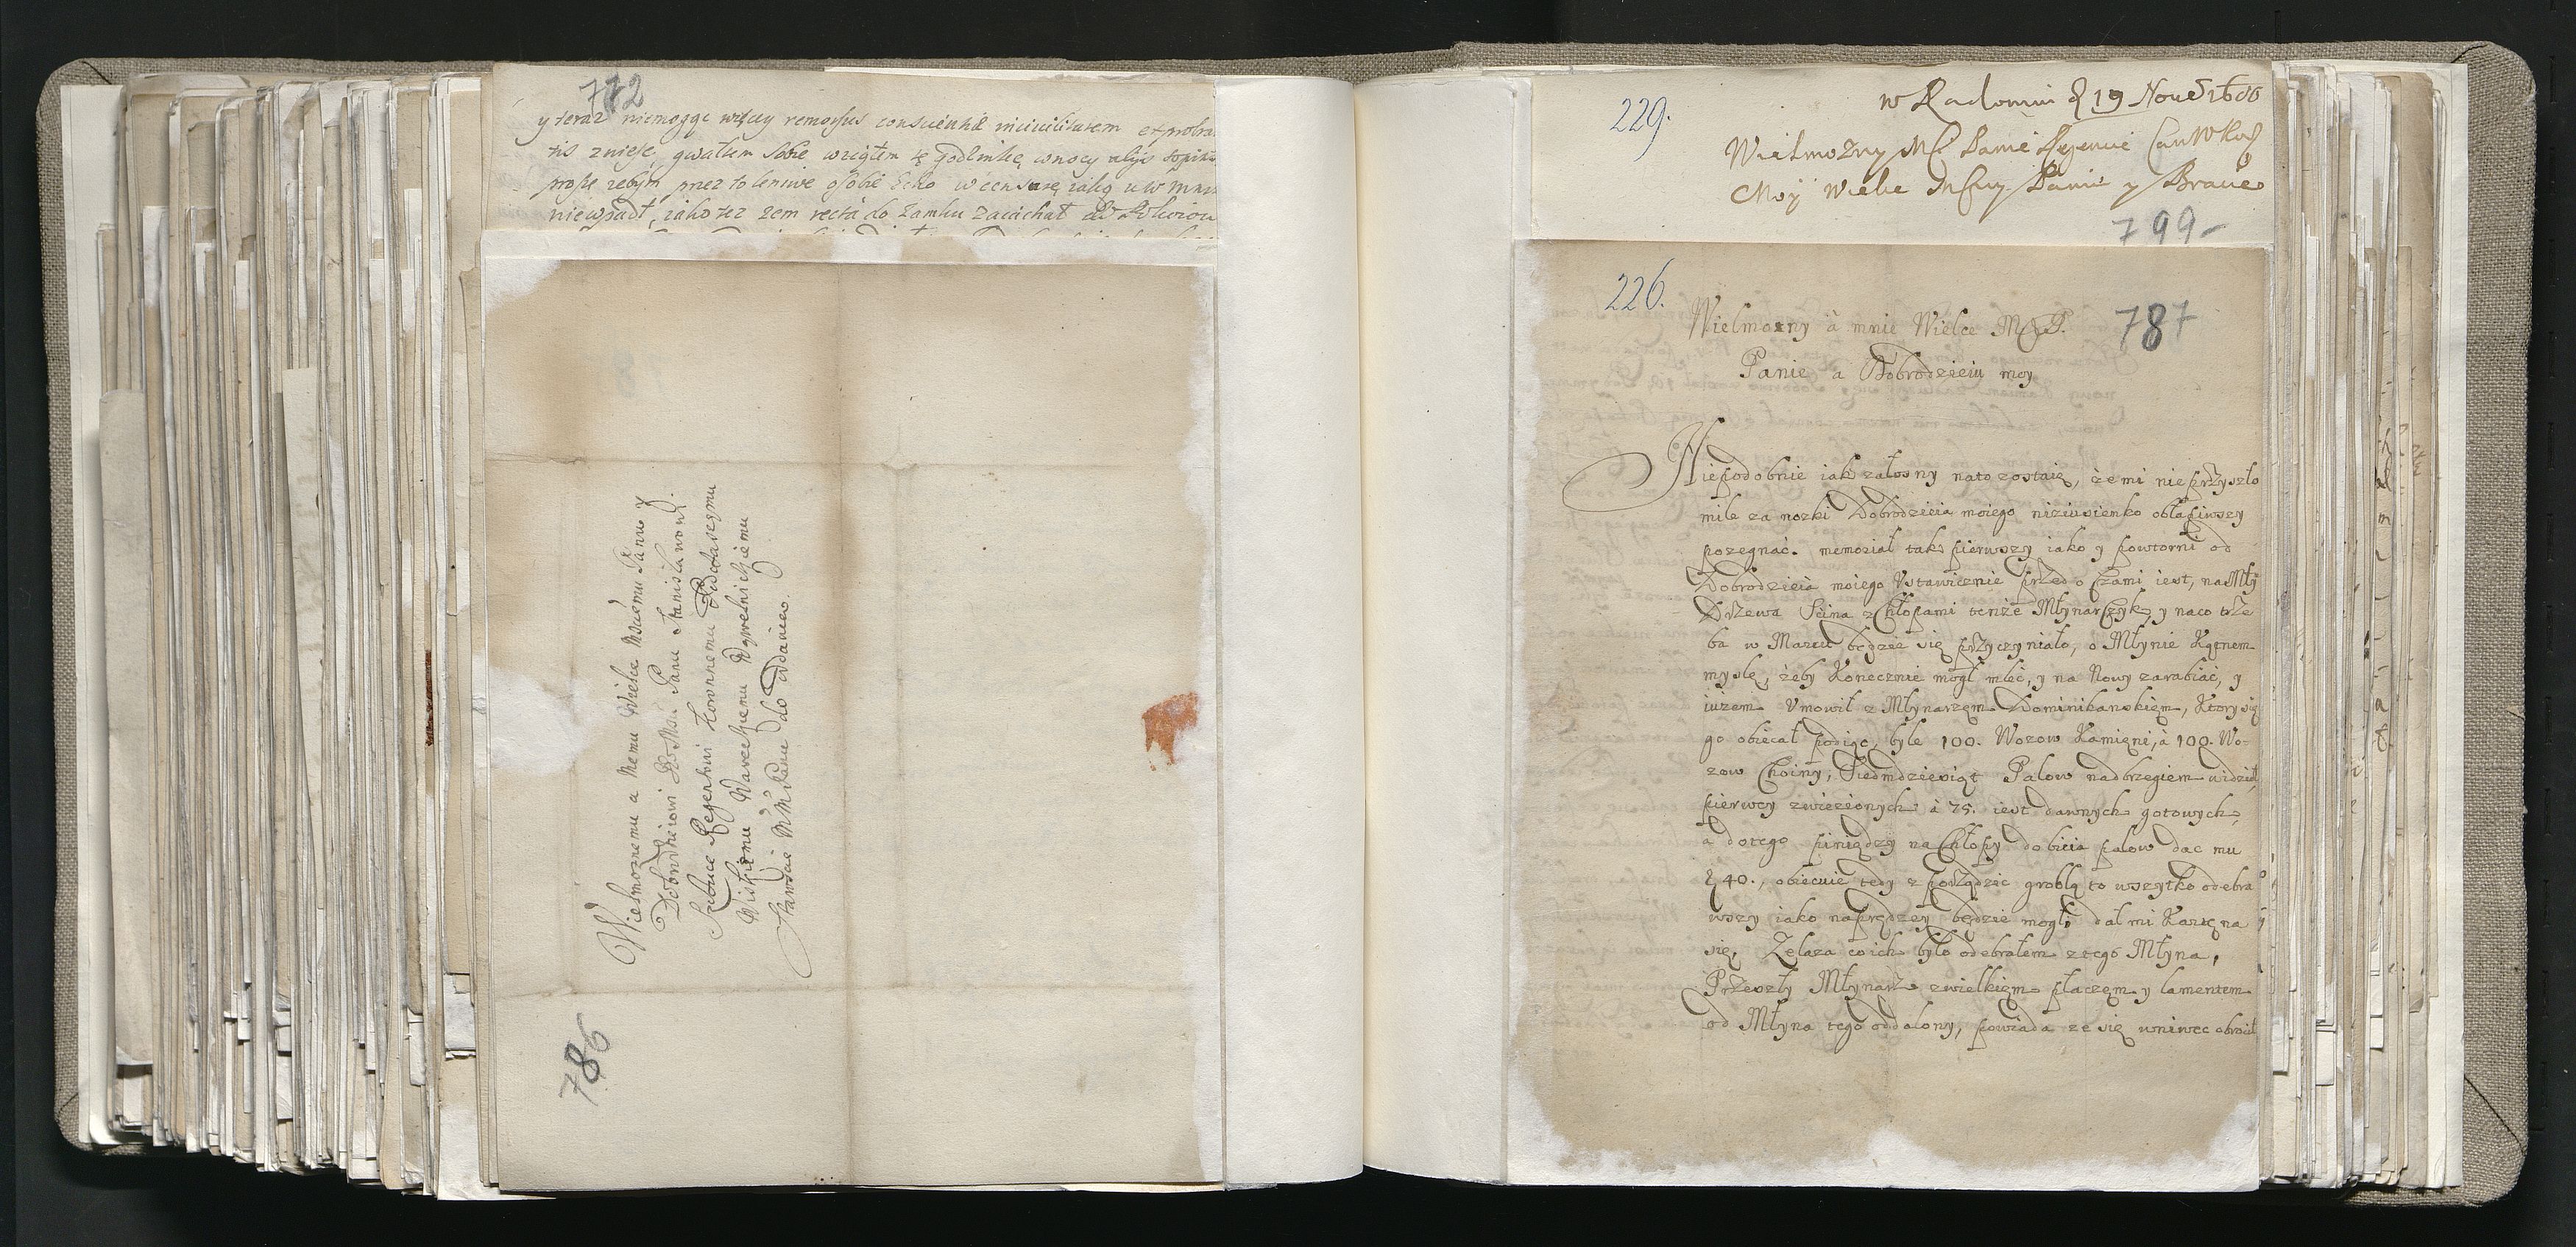 772
y teraz niemogąc więcy remorsus conscientiæ incivilitatem exprobra
tis znieść, gwałtem sobie wziąłem tę godzinkę wnocy
proszę zebym przez to leniwe osobie Echo w censurę iaką u W
niewpadł, iako tez zem recta do Zamku zaiachał
Wielmoznemu a Memu Wielce Mśćiemu Panu y
Dobrodzieiowi Je Mśći Panu Stanisławowi
Szubce Regentowi Koronnemu Podstarzemu
Wiskiemu Wareckiemu
Stawaić M M Panu do oddania.
786
229.
w Radomiu d 19 Nove 1680
Wielmozny Mći Panie Regencie Can W Kor
Moy Wielce Mśćiwy Panie y Bracie
799
226.
787
Wielmozny à mnie Wielce M P.
Panie a Dobrodzieiu moy
Niepodobnie iak załosny nato zostaię, że mi nie przyszło
mile za nozki Dobrodzieia moiego niziusienko obłapiwszy
pozegnać. memoriał tak pierwszy iako y powtorni od
Dobrodzieia moiego Vstawicznie przed oczami iest, na Mły
Drzewa Scina z Chłopami tenże Młynarczyk, y naco trze
ba w Marcu będzie się przyczyniało, o Młynie Kątnem
myslę, żeby Konecznie mogł mleć, y na Nowy zarabiać, y
iuzem Vmowił z Młynarzem Dominikanskiem, Ktory się
go obiecał podiąć, byle 100. Wozow Kamięni, à 100. Wo-
zow Choiny, Siedmdziesiąt Palow nadbrzegiem widział
pierwey zwiezionych à 75. iest dawnych gotowych,
a dotego piniędzy na Chłopy dobicia palow dac mu
40., obiecuie tedy z porządzic groblą to wszytko odebra
wszy iako naprędzey będzie mogł, dał mi Karę na
się, Zelaza co ich było odebrałem z tego Młyna,
Przeszły Młynarz zwielkiem płaczem y lamentem
od Młyna tego oddalony, powiada ze się wniwec obrocił